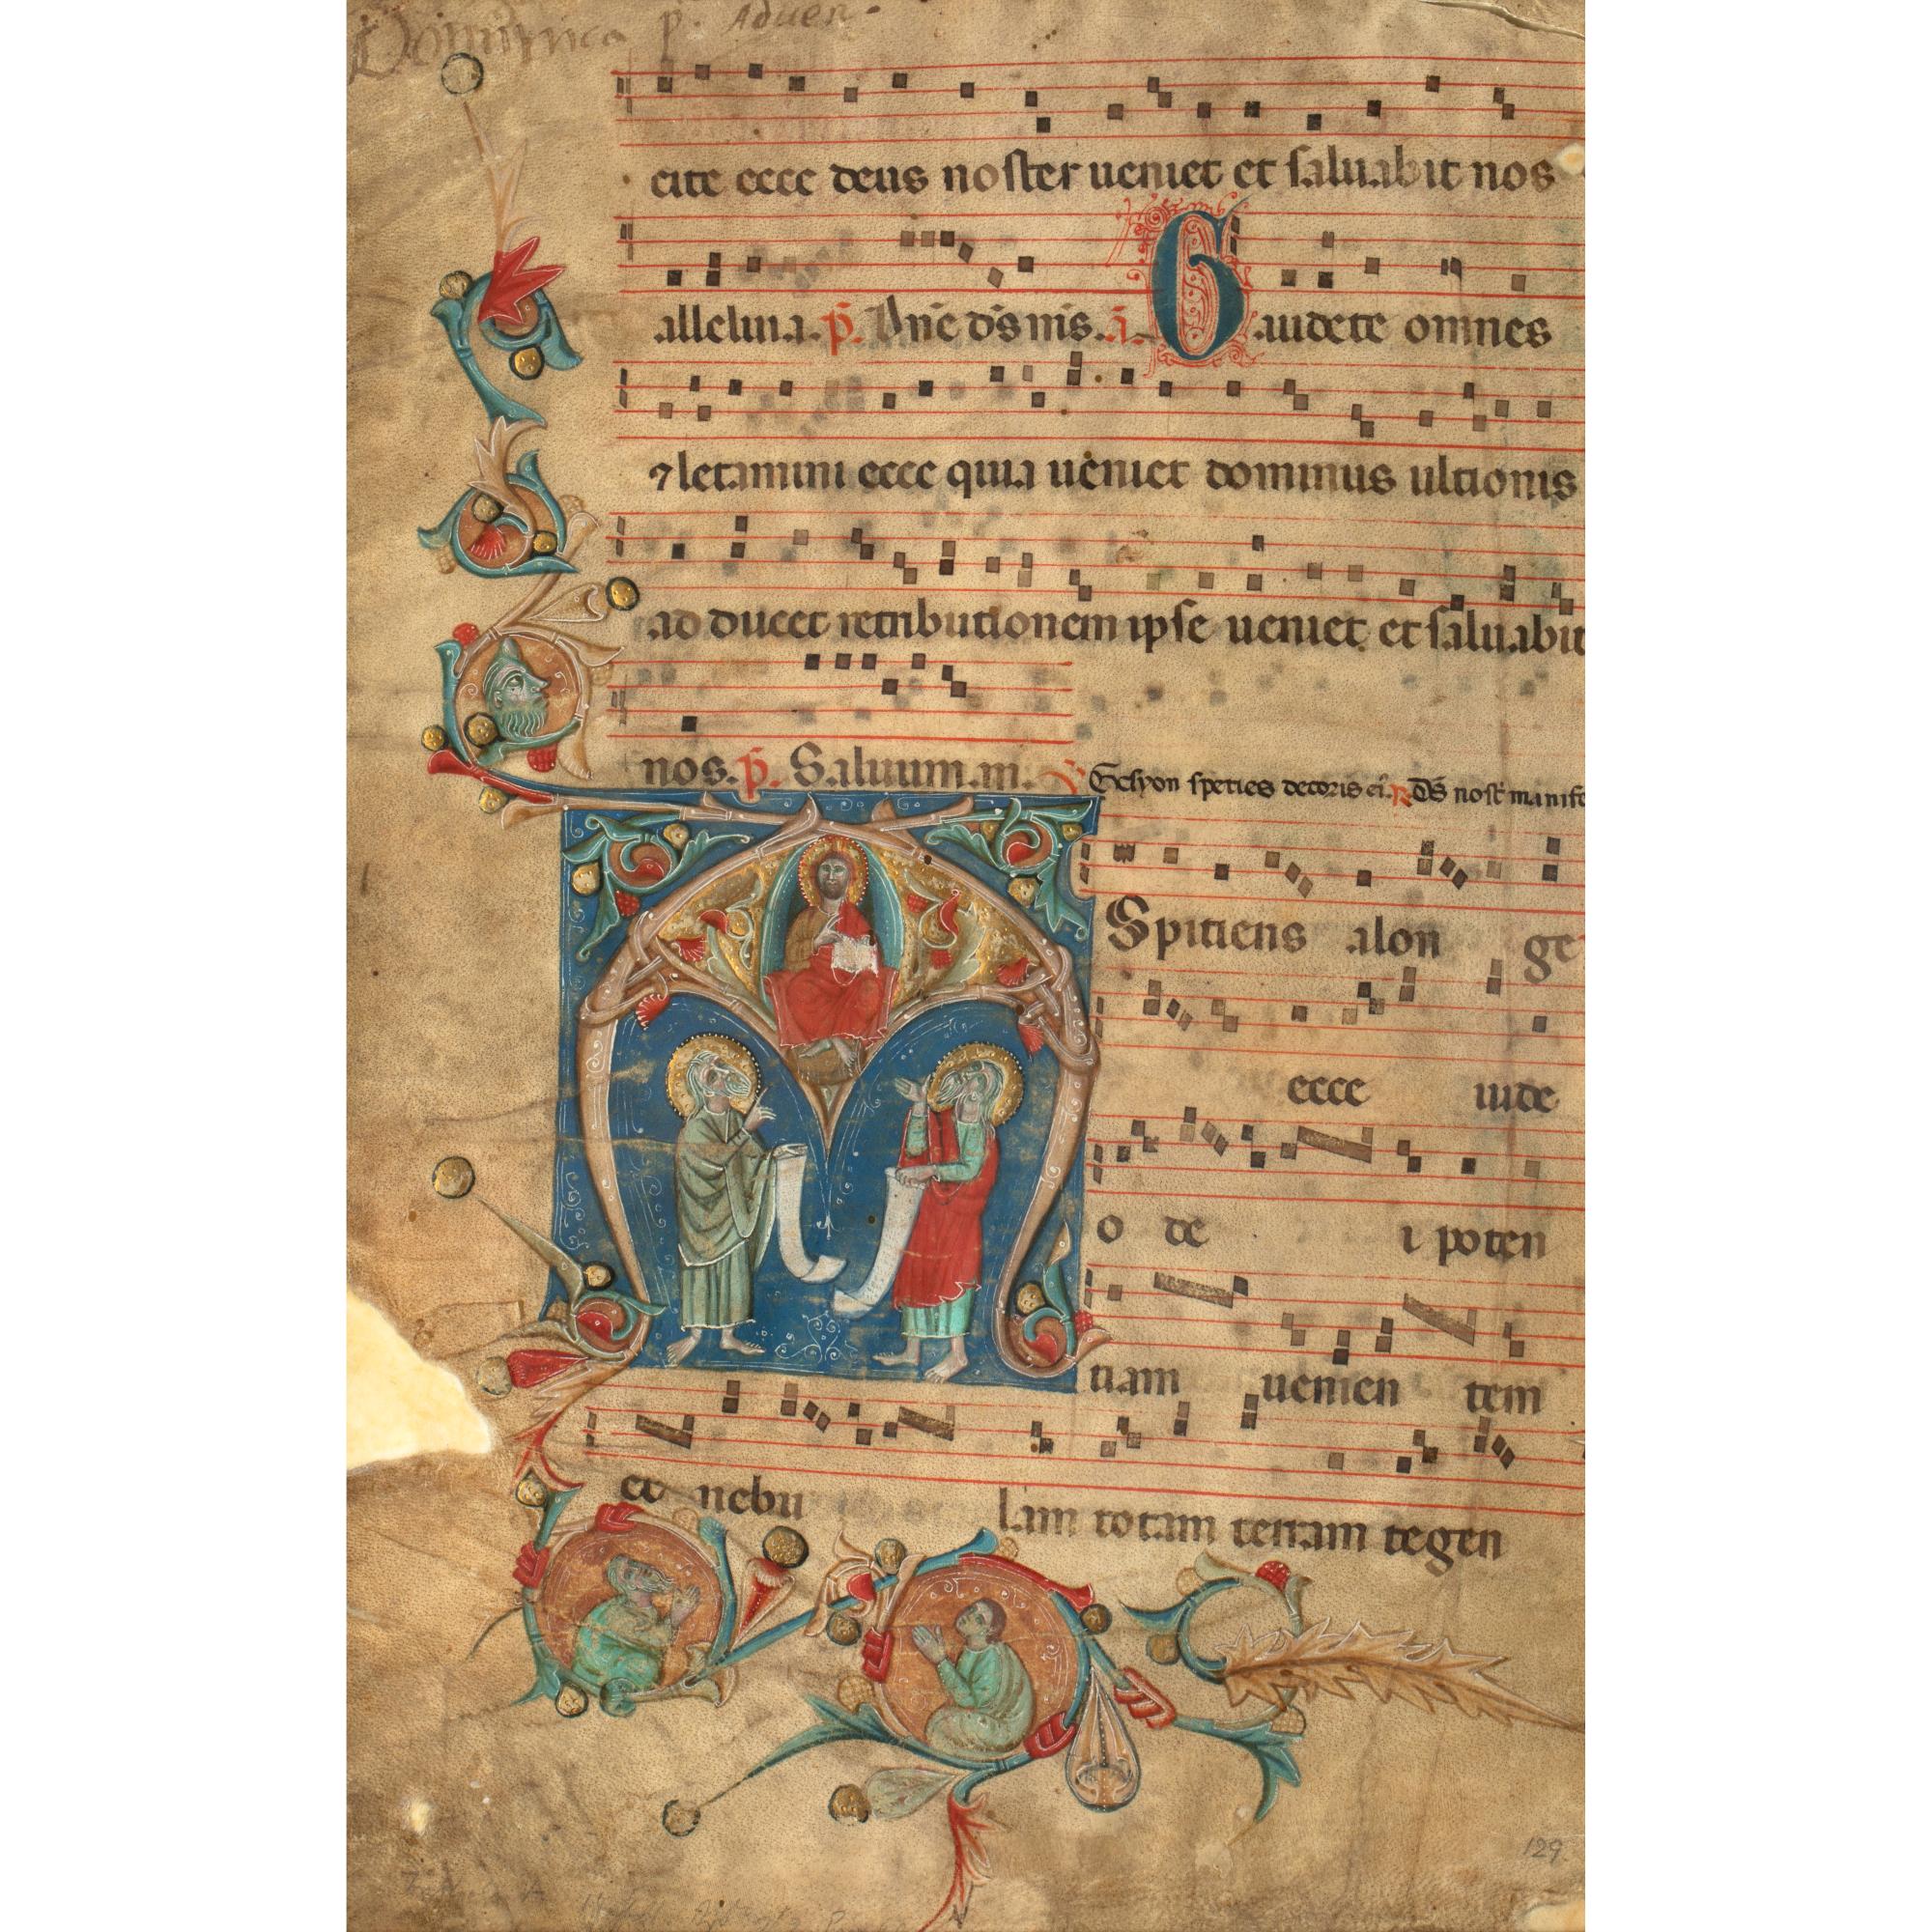 Dominica p. Aduen.
cite ecce deus noster ueniet et saluabit nos
alleluia. p̄. Dn̄e dn̄s nr̄s. ā. Gaudete omnes
⁊ letamini ecce quia ueniet dominus ultionis
ad ducet retributionem ipse ueniet et saluabit
nos. p̄. Saluum. m.
Ex syon species decoris ei'. R. Ds̄ nostr̄ manife
ASpitiens a lon ge
ecce uide
o de i poten
tiam uenien tem
et nebu lam totam terram tegen
129.